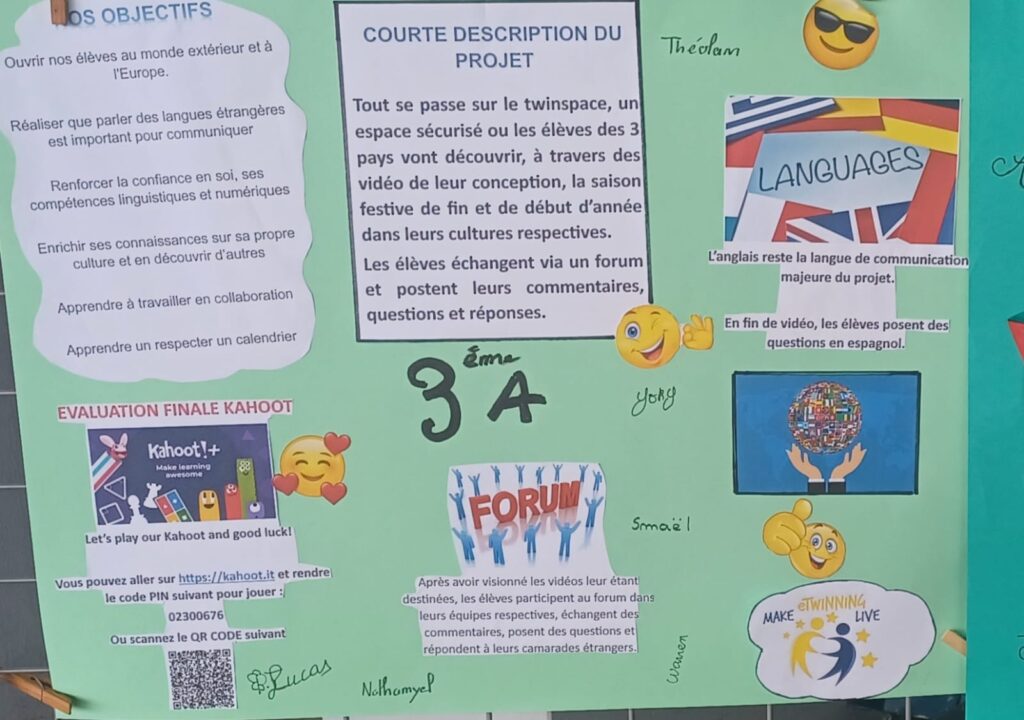 NOS OBJECTIFS
Ouvrir nos élèves au monde extérieur et à
l'Europe.
Réaliser que parler des langues étrangères
est important pour communiquer
Renforcer la confiance en soi, ses
compétences linguistiques et numériques
Enrichir ses connaissances sur sa propre
culture et en découvrir d'autres
Apprendre à travailler en collaboration
Apprendre un respecter un calendrier
COURTE DESCRIPTION DU
PROJET
Tout se passe sur le twinspace, un
espace sécurisé ou les élèves des 3
pays vont découvrir, à travers des
vidéo de leur conception, la saison
festive de fin et de début d'année
dans leurs cultures respectives.
Les élèves échangent via un forum
et postent leurs commentaires,
questions et réponses.
Théolam
LANGUAGES
L'anglais reste la langue de communication
majeure du projet.
En fin de vidéo, les élèves posent des
questions en espagnol.
3ème A
EVALUATION FINALE KAHOOT
Kahoot!+
Make learning
awesome
Let's play our Kahoot and good luck!
Vous pouvez aller sur https://kahoot.it et rendre
le code PIN suivant pour jouer :
02300676
Ou scannez le QR CODE suivant
Lucas
FORUM
Après avoir visionné les vidéos leur étant
destinées, les élèves participent au forum dans
leurs équipes respectives, échangent des
commentaires, posent des questions et
répondent à leurs camarades étrangers.
Nathamyel
Smaël
MAKE eTWINNING LIVE